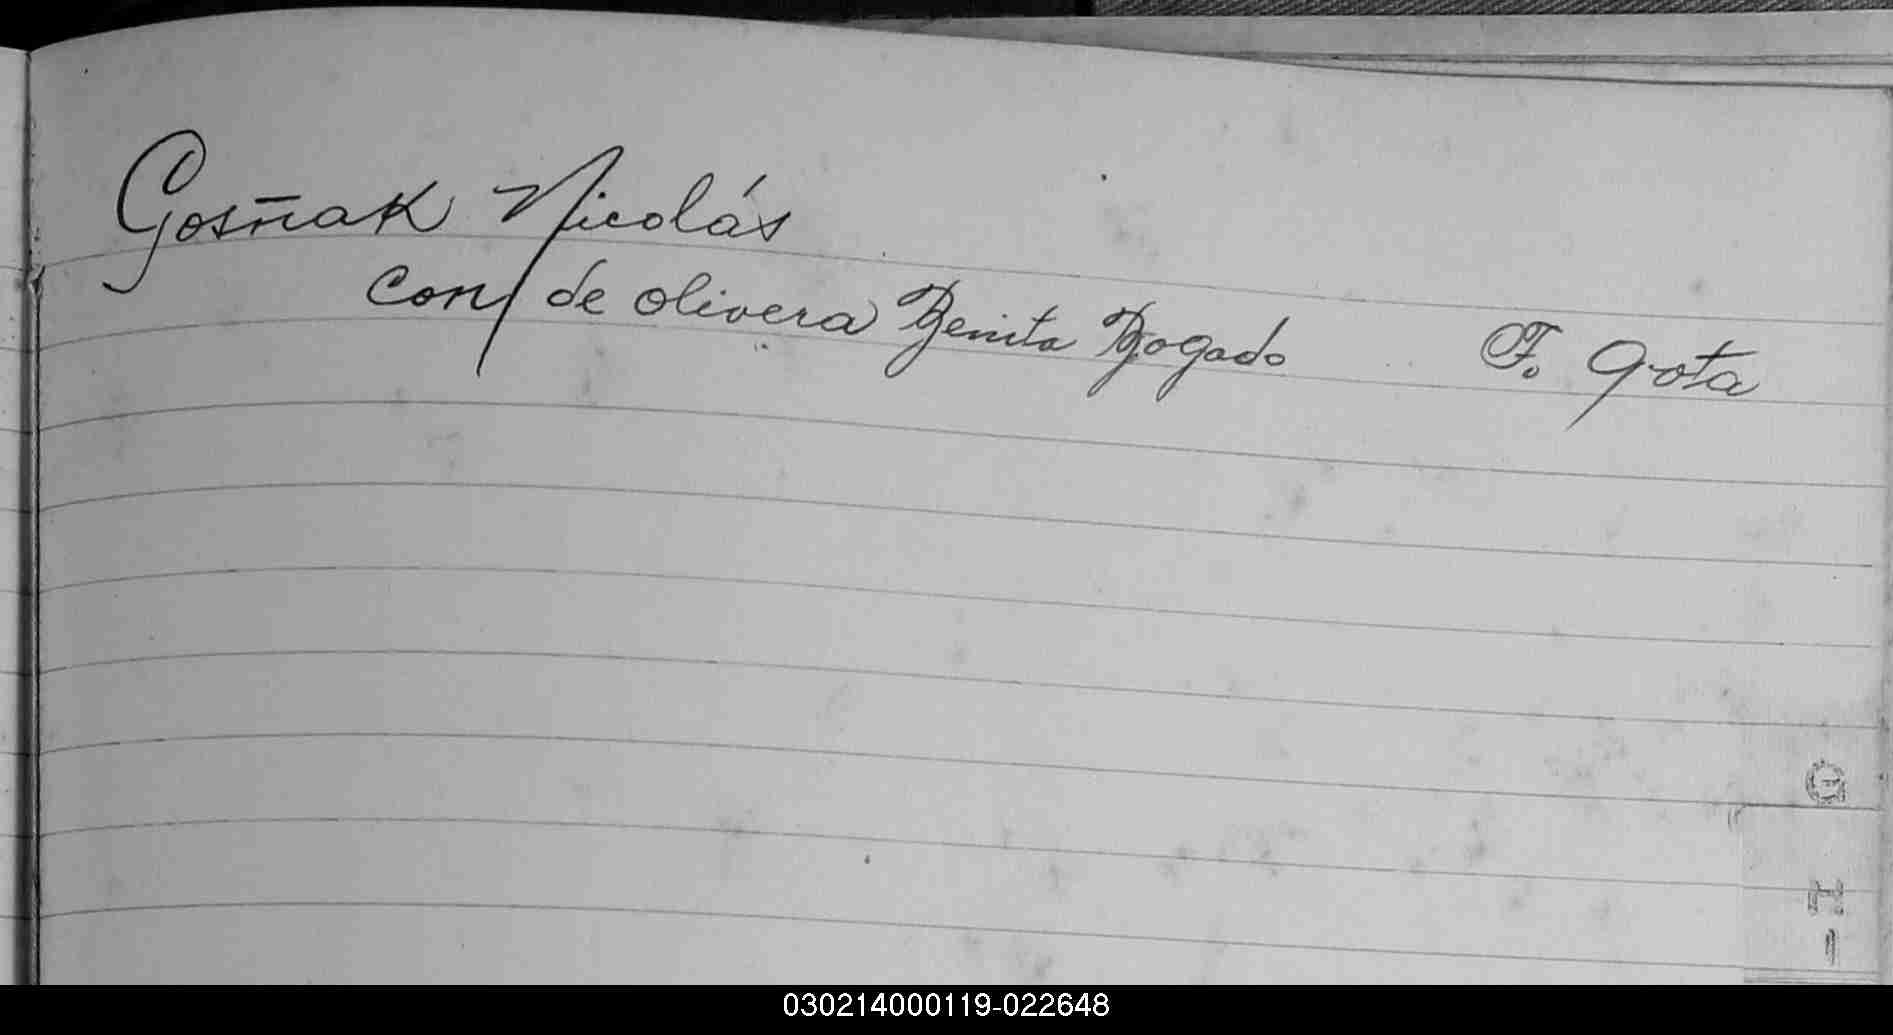 Gosñak Nicolás
con de olivera Benita Bogado F. Gota
G
H
I
030214000119-022648